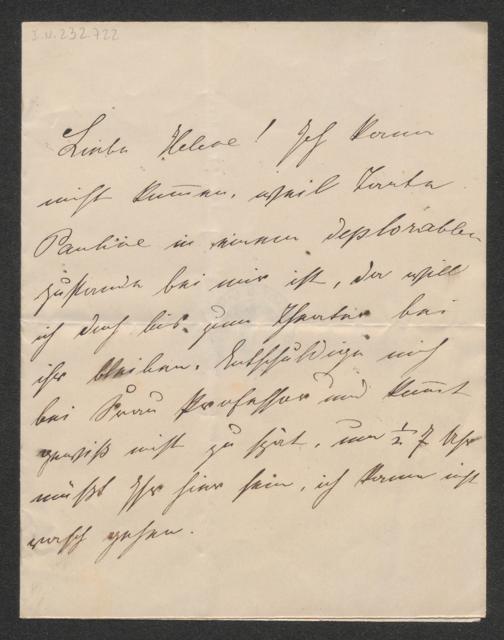 I.N.232.722
Liebe Helene! Ich kann
nicht kommen, weil Tante
Pauline in einem deplorablen
Zustande bei mir ist, da will
ich doch bis zum Theater bei
ihr bleiben. Entschuldige mich
bei Frau Professor und kommt
gewiß nicht zu spät, um ½ 7 Uhr
müßt Ihr hier sein, ich kann nicht
rasch gehen.